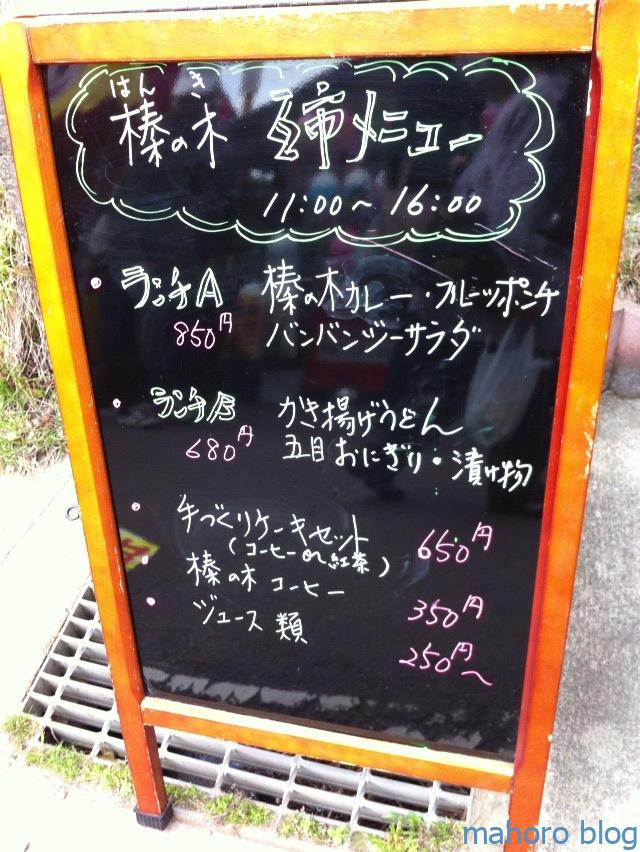 はん き
榛の木 メニュー
11:00～16:00
ランチA 榛の木カレー・フルーツポンチ
850円 バンバンジーサラダ
ランチB かき揚げうどん
680円 五目おにぎり・漬け物
手づくりケーキセット 650円
(コーヒーor紅茶)
榛の木コーヒー 350円
ジュース類 250円～
mahoro blog